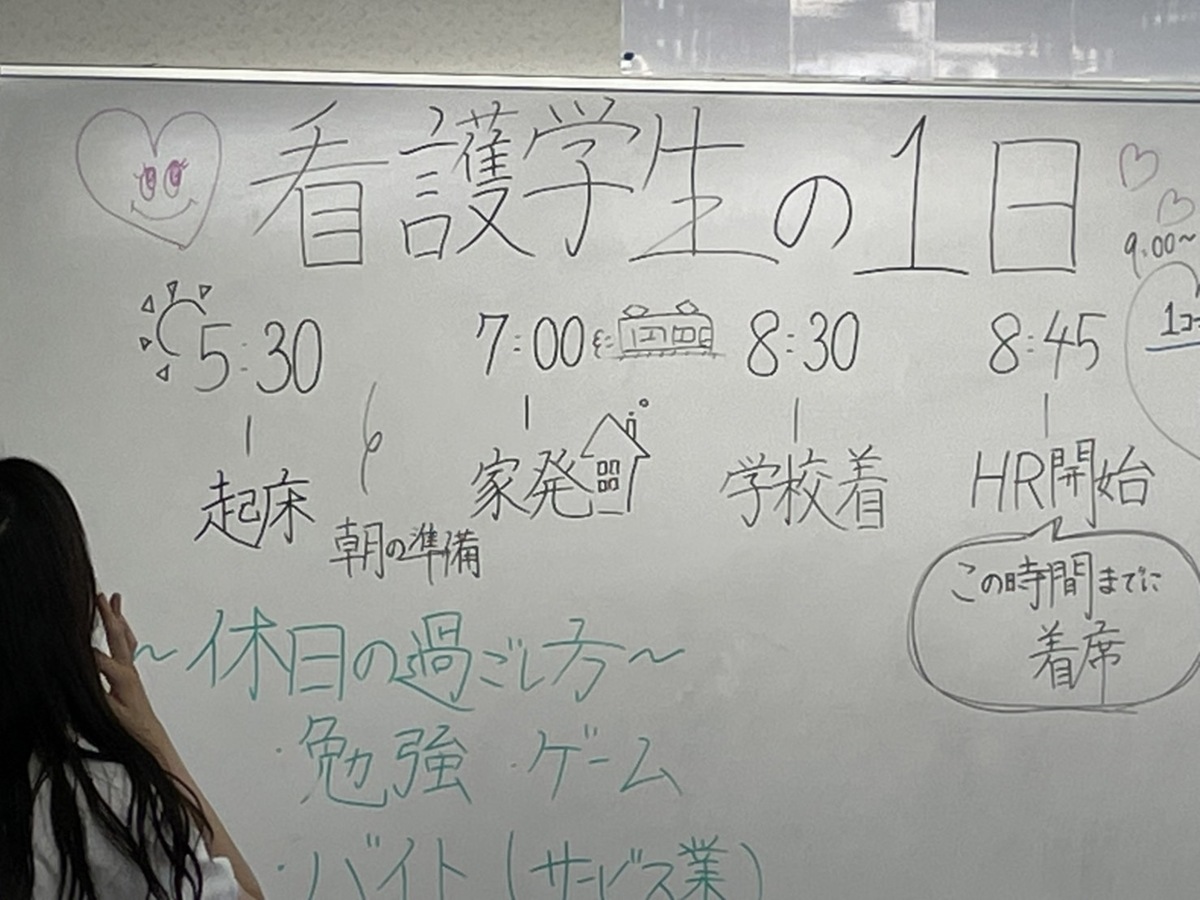 看護学生の1日
9:00~
5:30 7:00 8:30 8:45
1コ
起床 朝の準備 家発 学校着 HR開始
この時間までに
着席
~休日の過ごし方~
・勉強 ・ゲーム
・バイト(サービス業)